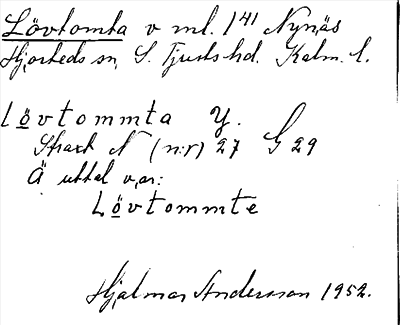 Lövtomta v ml. 1⁴¹ Nynäs
Hjorteds sn, S. Tjusts hd. Kalm. l.
Lövtommta Y.
Strax N (n:r) 27 G 29
Ä uttal var:
Lövtommte
Hjalmar Andersson 1952.